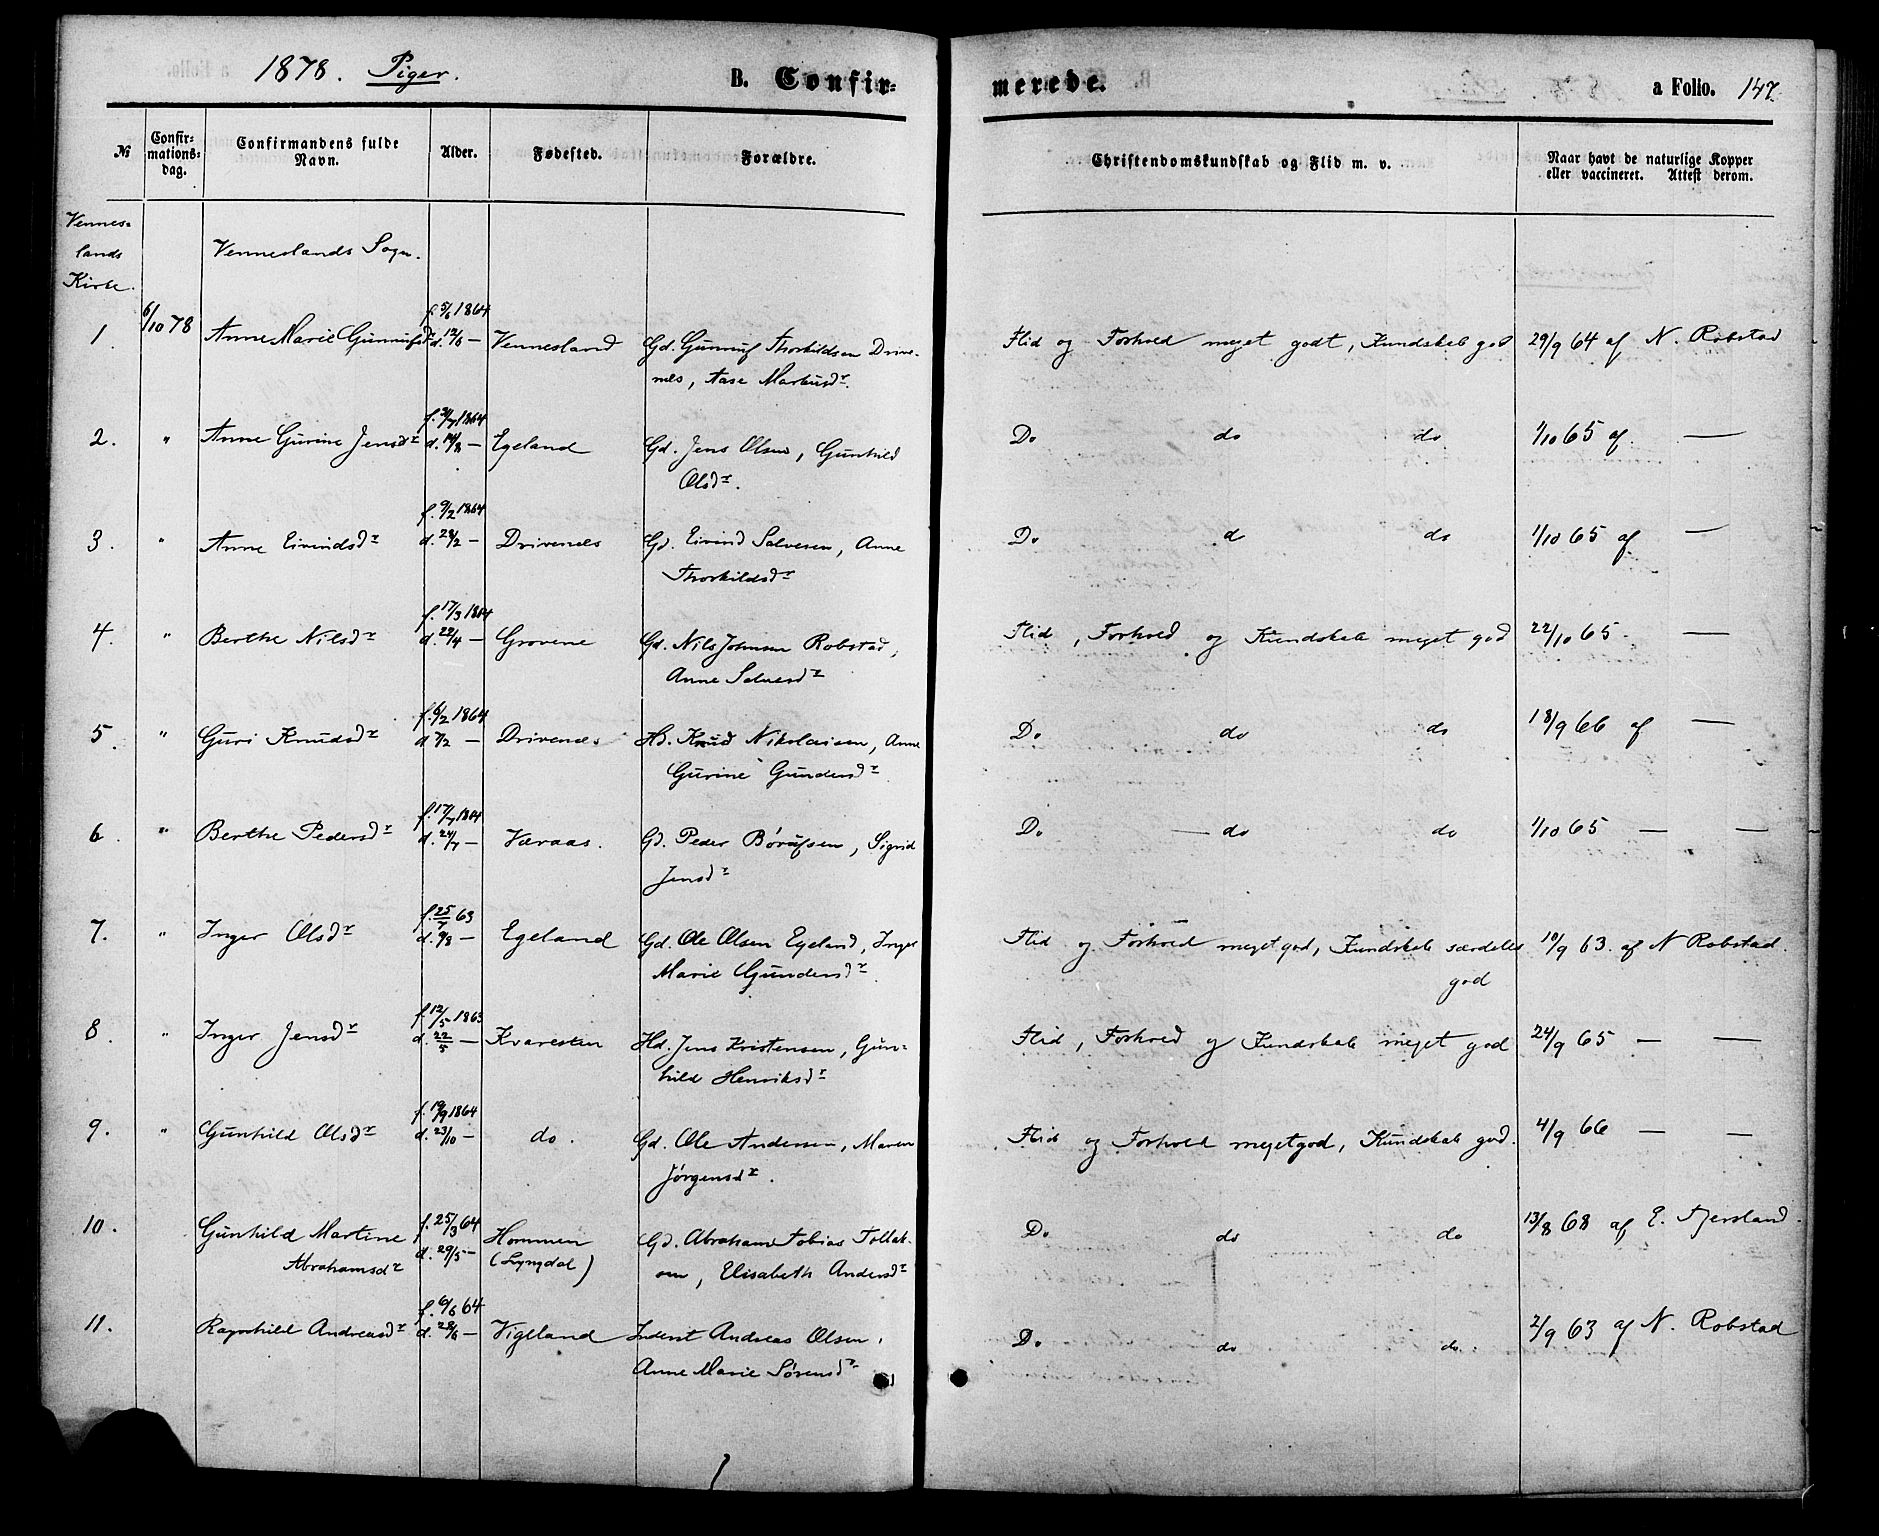 1878. Piger. B. Confir-
merede. a Folio. 147.
№ Confir-mations-dag. Confirmandens fulde Navn. Alder. Fødested. Forældre. Christendomskundskab og Flid m. v. Naar havt de naturlige Kopper eller vaccineret. Attest derom.
Vennes-
lands Venneslands Sogn.
Kirke.
f. 5/6 1864
1. 6/10 78 Anne Marie Gunnufsdr d. 12/6 — Vennesland Gd. Gunnuf Thorkildsen Drive- Flid og Forhold meget godt, Kundskab god 29/9 64 af N. Robstad
nes, Aase Markusdr.
1864
2. " Anne Gurine Jensdr d. 14/8 — Egeland Gd. Jens Olsen, Gunhild Do do do 1/10 65 af —
Olsdr.
f. 9/2 1864
3. " Anne Eivindsdr d. 28/2 — Drivenes Gd. Eivind Salvesen, Anne Do d do 1/10 65 af —
Thorkildsdr
f. 17/3 1864
4. " Berthe Nilsdr d. 22/4 — Grovene Gd. Nils Johnsen Robstad, Flid, Forhold og Kundskab meget god 22/10 65. —
Anne Salvesdr
f. 6/2 1864
5. " Guri Knudsdr d. 7/2 — Drivenes Hd. Knud Nikolaisen, Anne Do do do 18/9 66 af —
Gurine Gundersdr
f. 17/7 1864
6. " Berthe Pedersdr d. 24/7 — Væraas. Gd. Peder Børufsen, Sigrid Do — do do 1/10 65 — —
Jensdr
f. 25/7 63
7. " Inger Olsdr d. 9/8 — Egeland Gd. Ole Olsen Egeland, Inger Flid og Forhold meget god, Kundskab særdeles 10/9 63. af N Robstad.
Marie Gundersdr. god
f. 12/5 1863
8. " Inger Jensdr d. 22/5 — Kvaresten Hd. Jens Kristensen, Gun- Flid, Forhold og Kundskab meget god 24/9 65 — —
hild Henriksdr
f. 19/9 1864
9. " Gunhild Olsdr d. 23/10 — do. Gd. Ole Andersen, Maren Flid og Forhold meget god, Kundskab god. 4/9 66 — —
Jørgensdr.
10. Gunhild Martine f. 25/3 64 Hommen Gd. Abraham Tobias Tollak- Do do do 13/8 68 af E. Fjersland.
Abrahamsdr d. 29/5 — (Lyngdal) sen, Elisabeth Andersdr
f. 6/6 64
11. Ragnhild Andreasdr d. 28/6 — Vigeland Inderst Andreas Olsen, Do do do. 2/9 63 af N. Robstad
Anne Marie Sørensdr